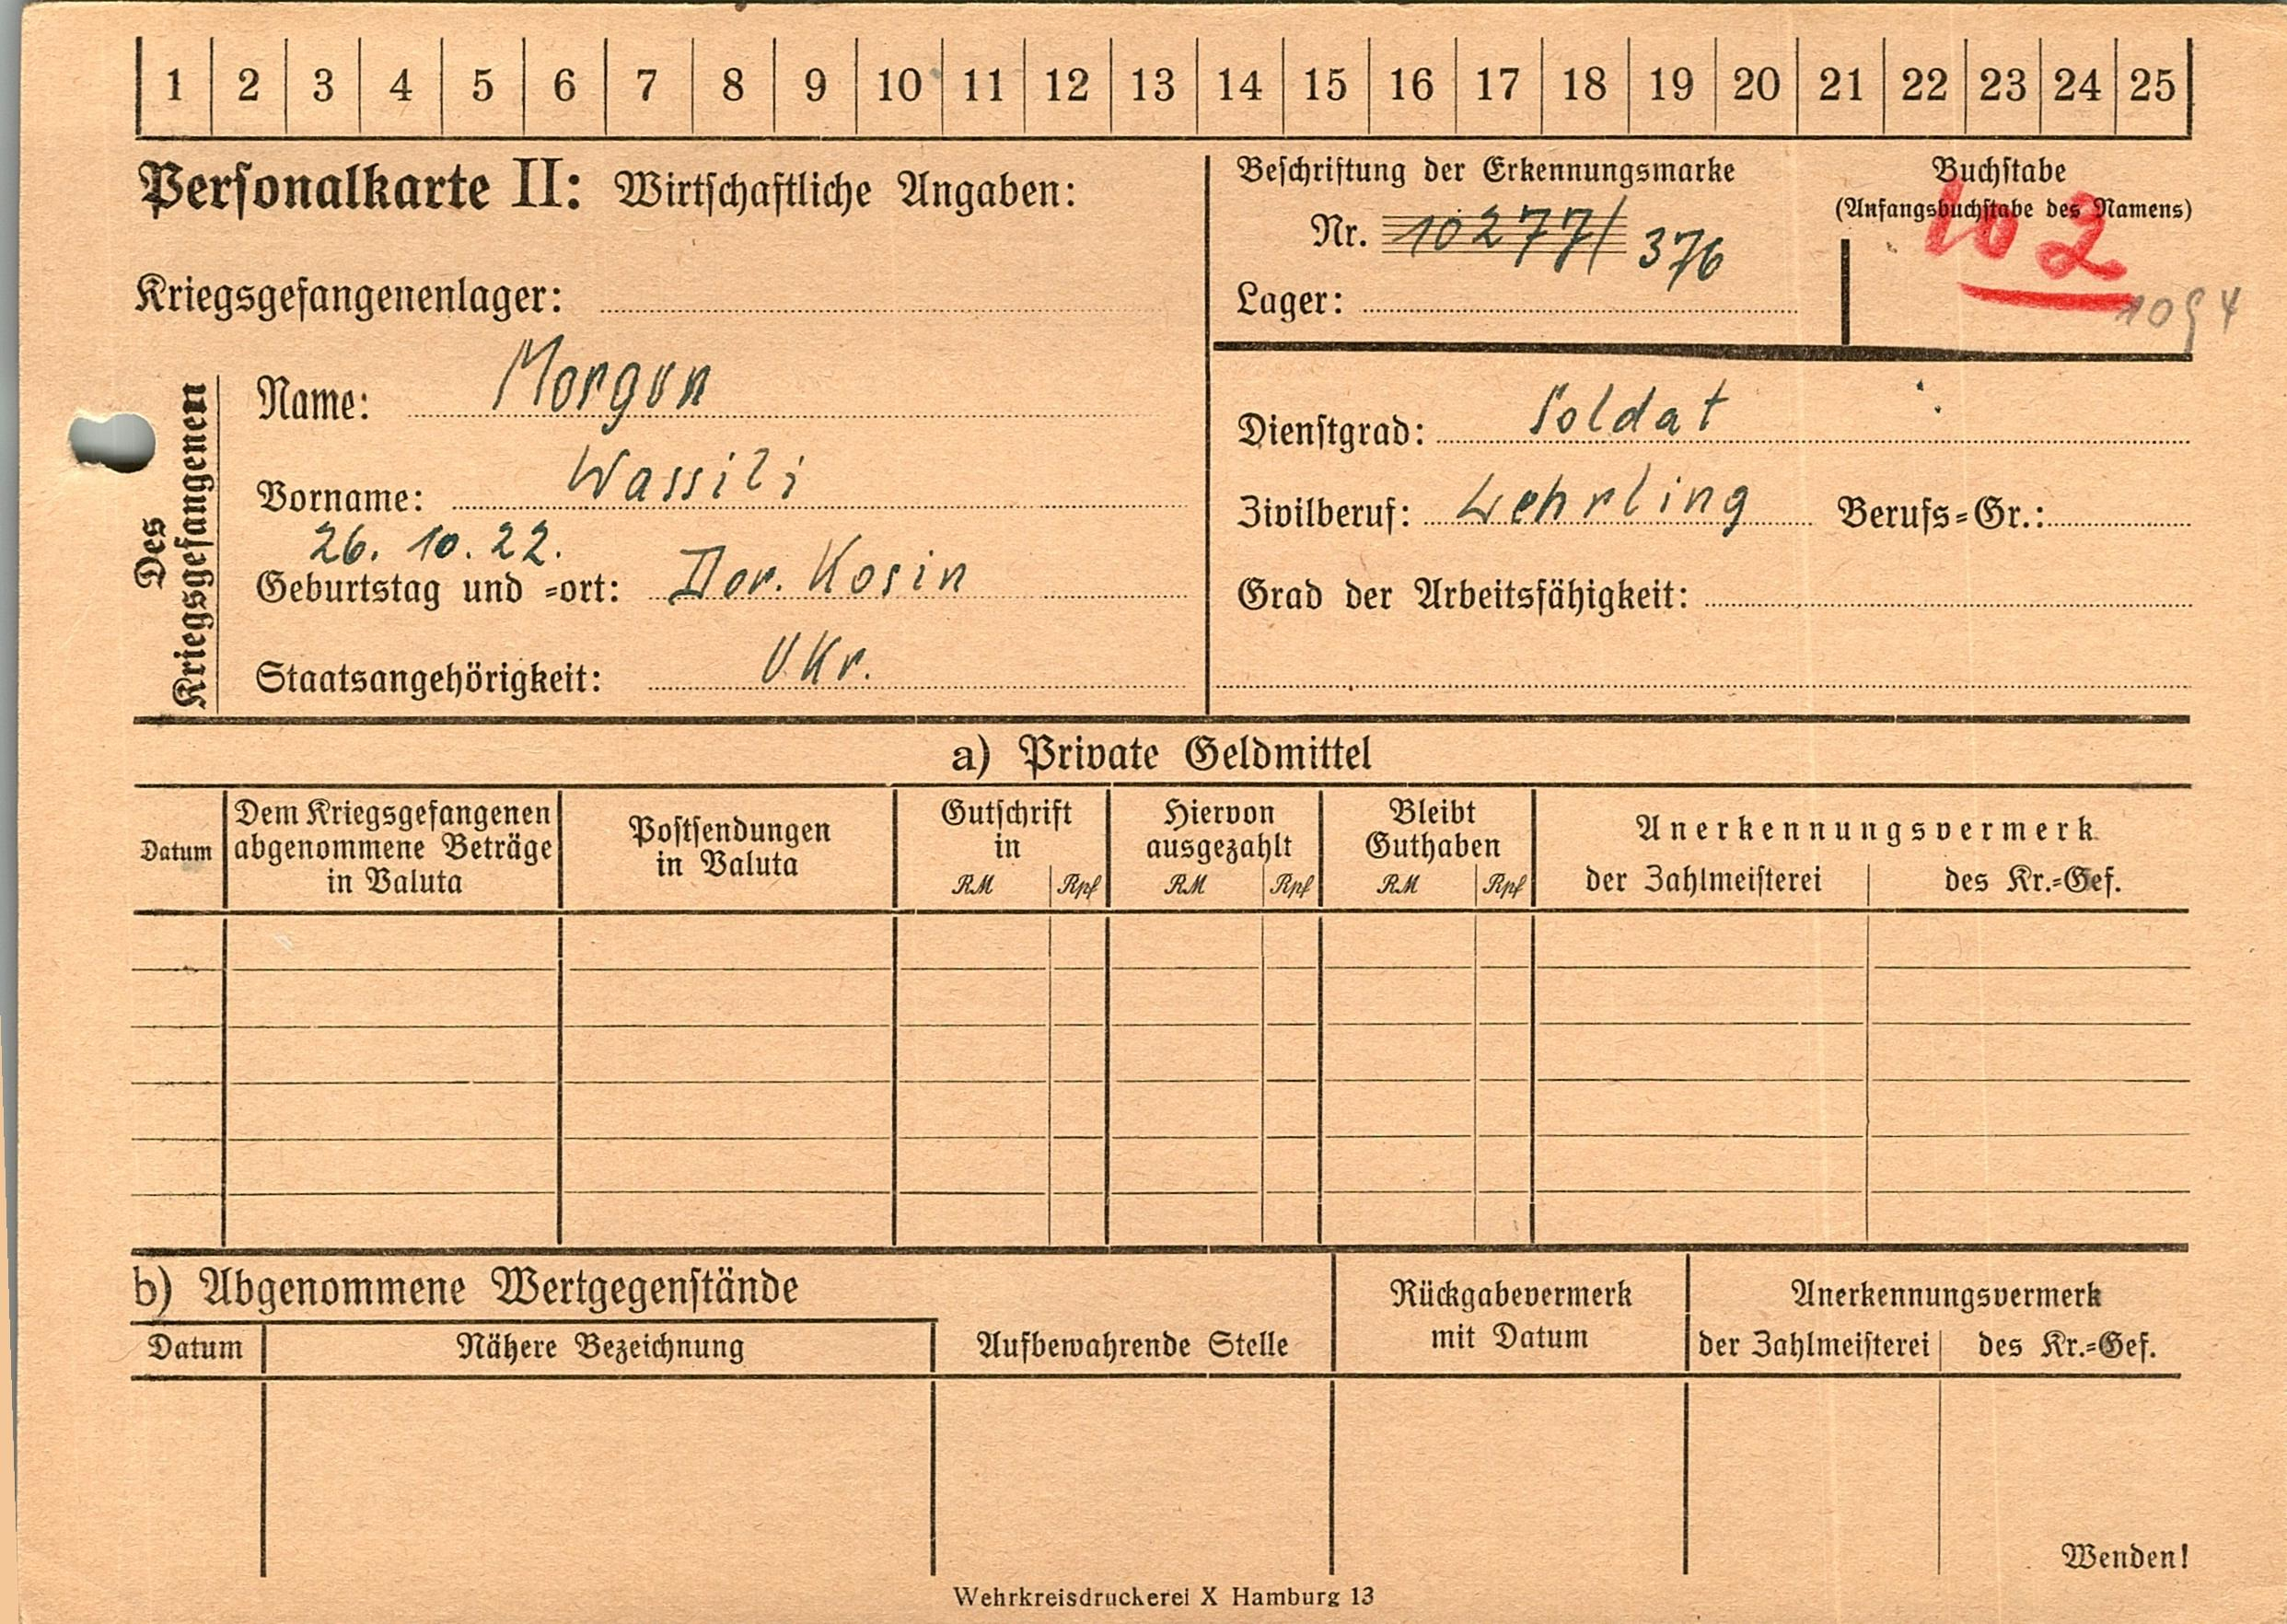 1 2 3 4 5 6 7 8 9 10 11 12 13 14 15 16 17 18 19 20 21 22 23 24 25
Personalkarte II: Wirtschaftliche Angaben:
Beschriftung der Erkennungsmarke
Nr. 10277/376
Lager:
Buchstabe
(Anfangsbuchstabe des Namens)
102
1094
Kriegsgefangenenlager:
Des Kriegsgefangenen
Name: Morgun
Vorname: Wassili
26. 10. 22.
Geburtstag und =ort: Dor. Kosin
Staatsangehörigkeit: Ukr.
Dienstgrad: Soldat
Zivilberuf: Lehrling Berufs=Gr.:
Grad der Arbeitsfähigkeit:
a) Private Geldmittel
Datum
Dem Kriegsgefangenen
abgenommene Beträge
in Valuta
Postsendungen
in Valuta
Gutschrift
in
RM Rpf
Hiervon
ausgezahlt
RM Rpf
Bleibt
Guthaben
RM Rpf
Anerkennungsvermerk
der Zahlmeisterei des Kr.=Gef.
b) Abgenommene Wertgegenstände
Datum Nähere Bezeichnung Aufbewahrende Stelle
Rückgabevermerk
mit Datum
Anerkennungsvermerk
der Zahlmeisterei des Kr.=Gef.
Wenden!
Wehrkreisdruckerei X Hamburg 13